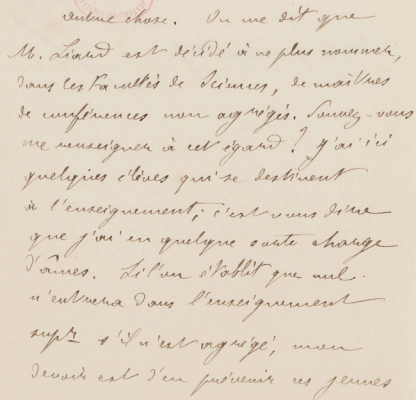 autre chose. On me dit que
M. Liard est décidé à ne plus nommer,
dans les Facultés de Sciences, de maîtres
de conférences non agrégés. Pouvez-vous
me renseigner à cet égard? J'ai ici
quelques élèves qui se destinent
à l'enseignement; c'est vous dire
que j'ai en quelque sorte charge
d'âmes. Si l'on établit que nul
n'entrera dans l'enseignement
supr s'il n'est agrégé, mon
devoir est d'en prévenir ces jeunes